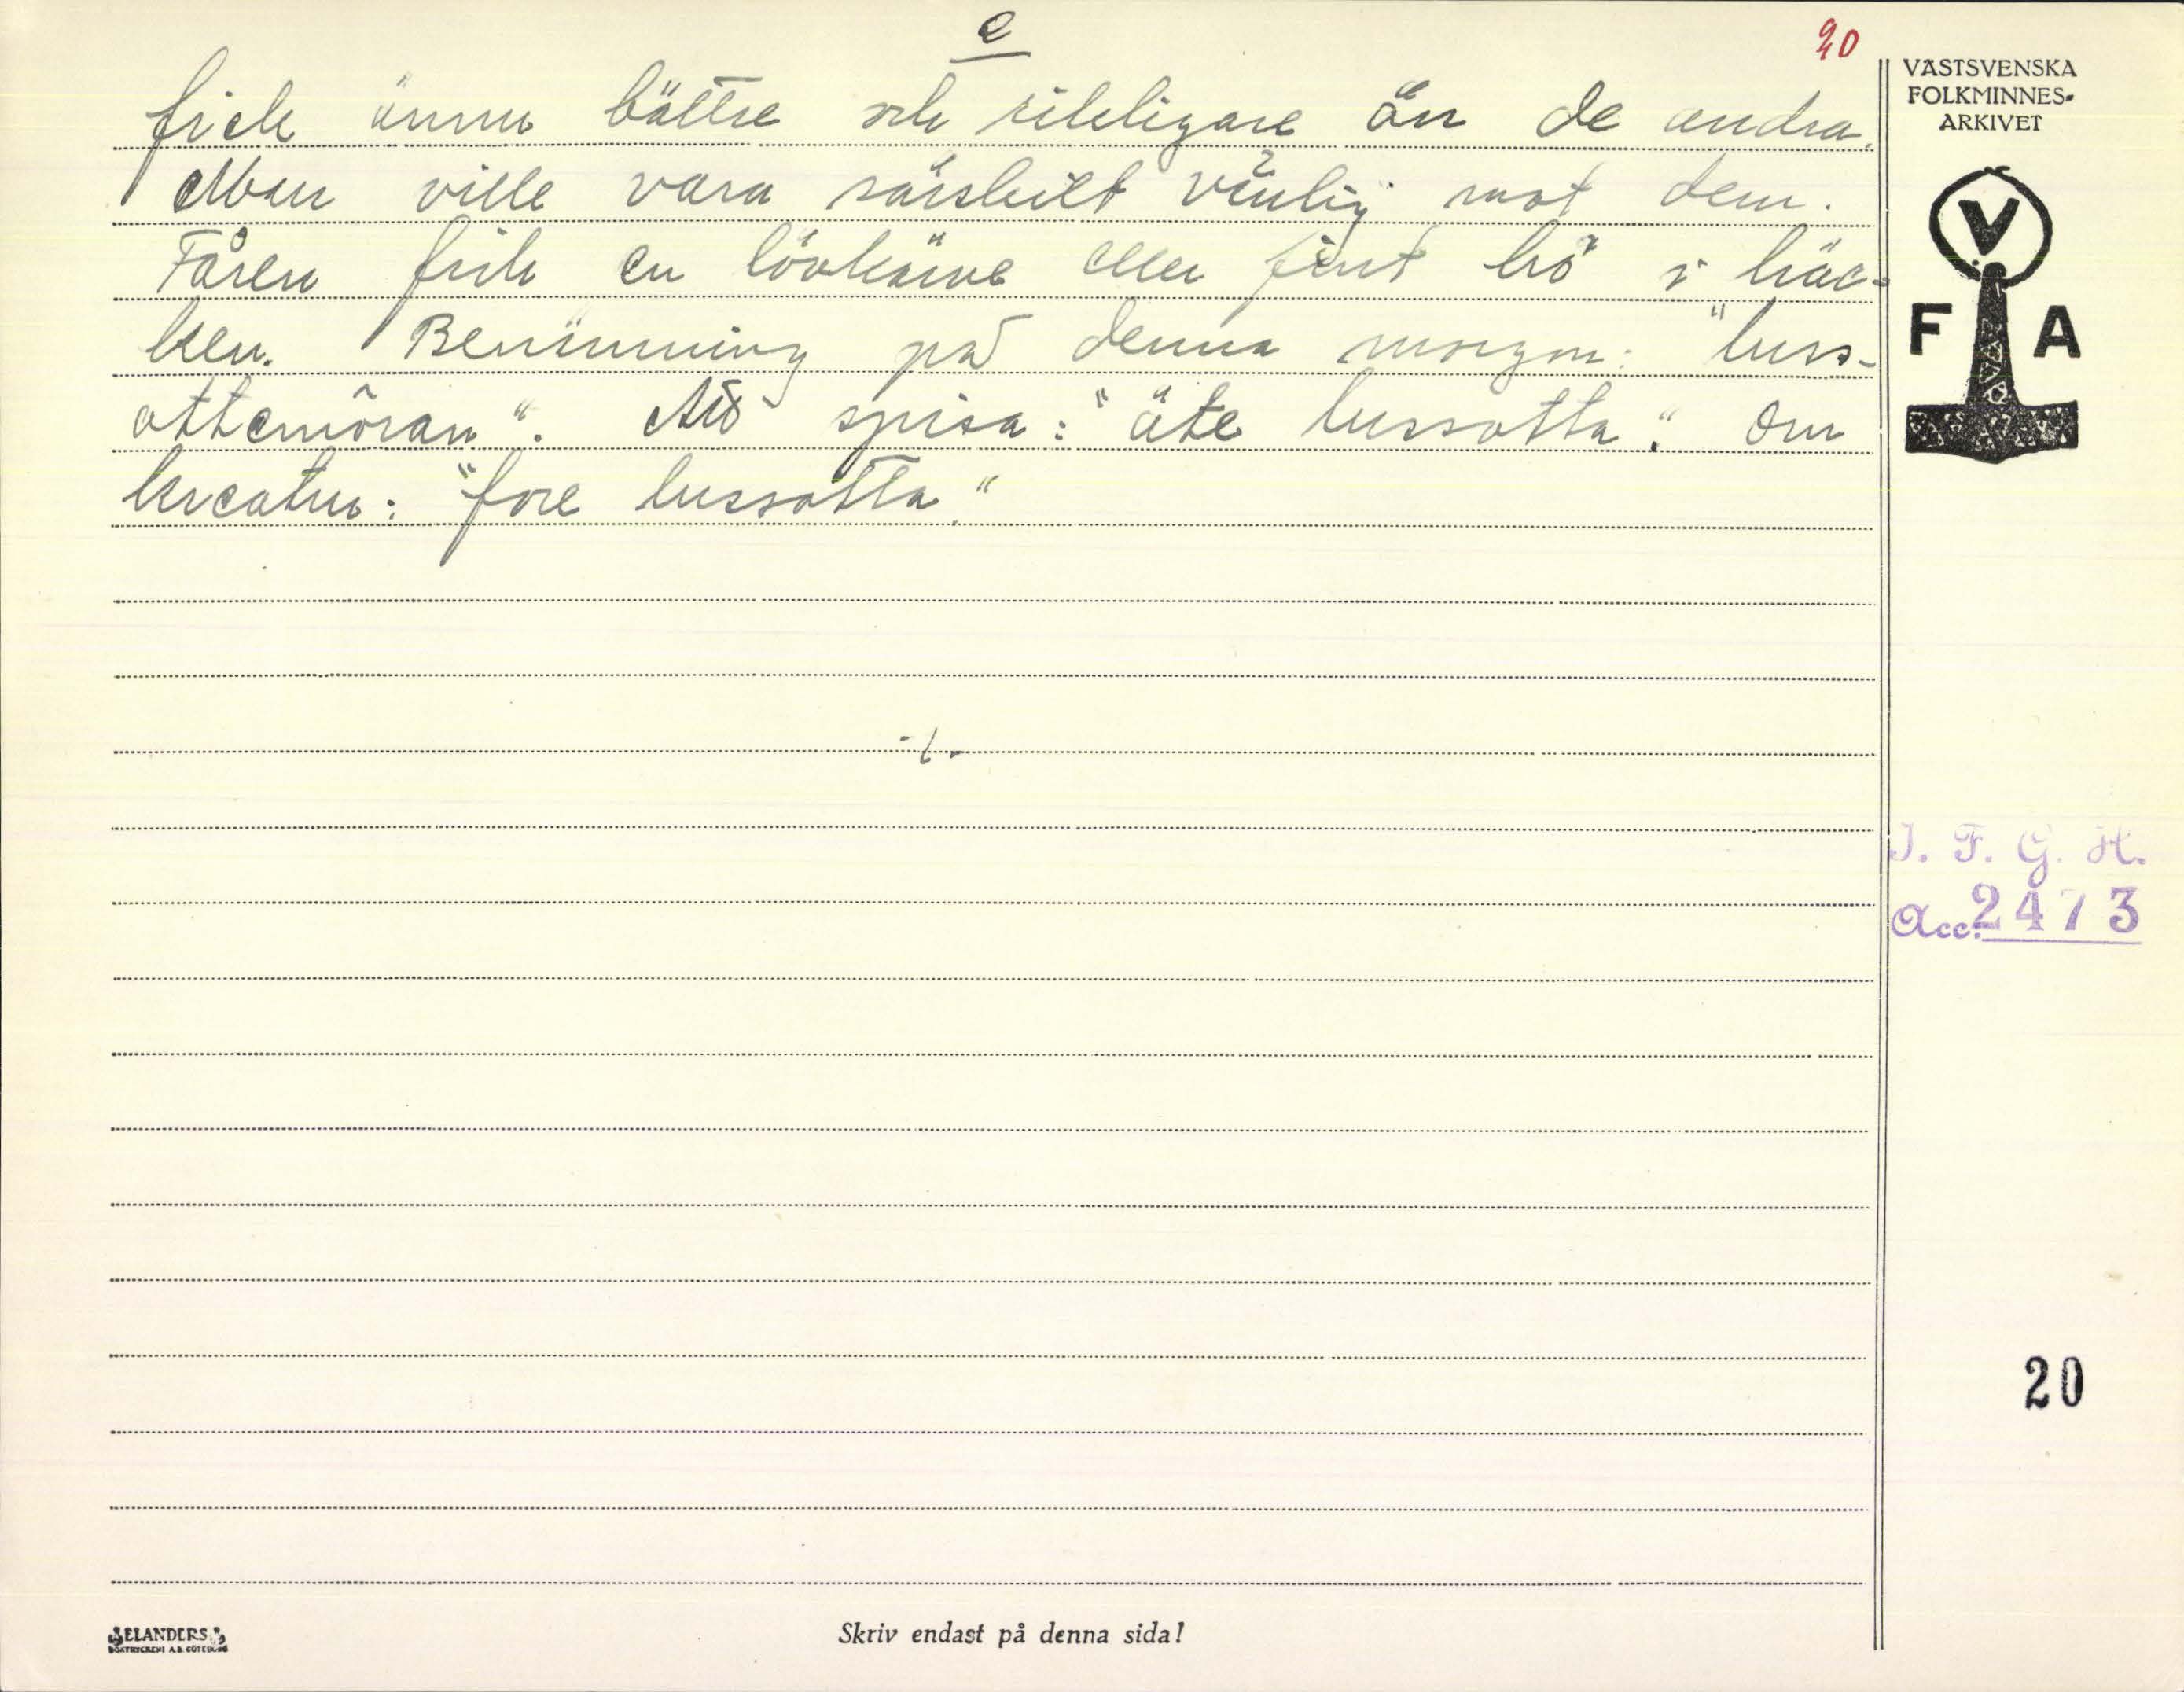 2
20
fick ännu bättre och rikligare än de andra.
Man ville vara särskilt vänlig mot dem.
Fåren fick en lövkärve eller fint hö i häc-
ken. Benämning på denna morgon: "luss-
ottemôran". Att spisa: "äte lussotta." Om
kreatur: "fore lussotta."
-/-
VÄSTSVENSKA
FOLKMINNES-
ARKIVET
V
F A
I. F. G. H.
Acc. 2473
20
ELANDERS
BOKTRYCKERI A.B. GÖTEBORG
Skriv endast på denna sida!